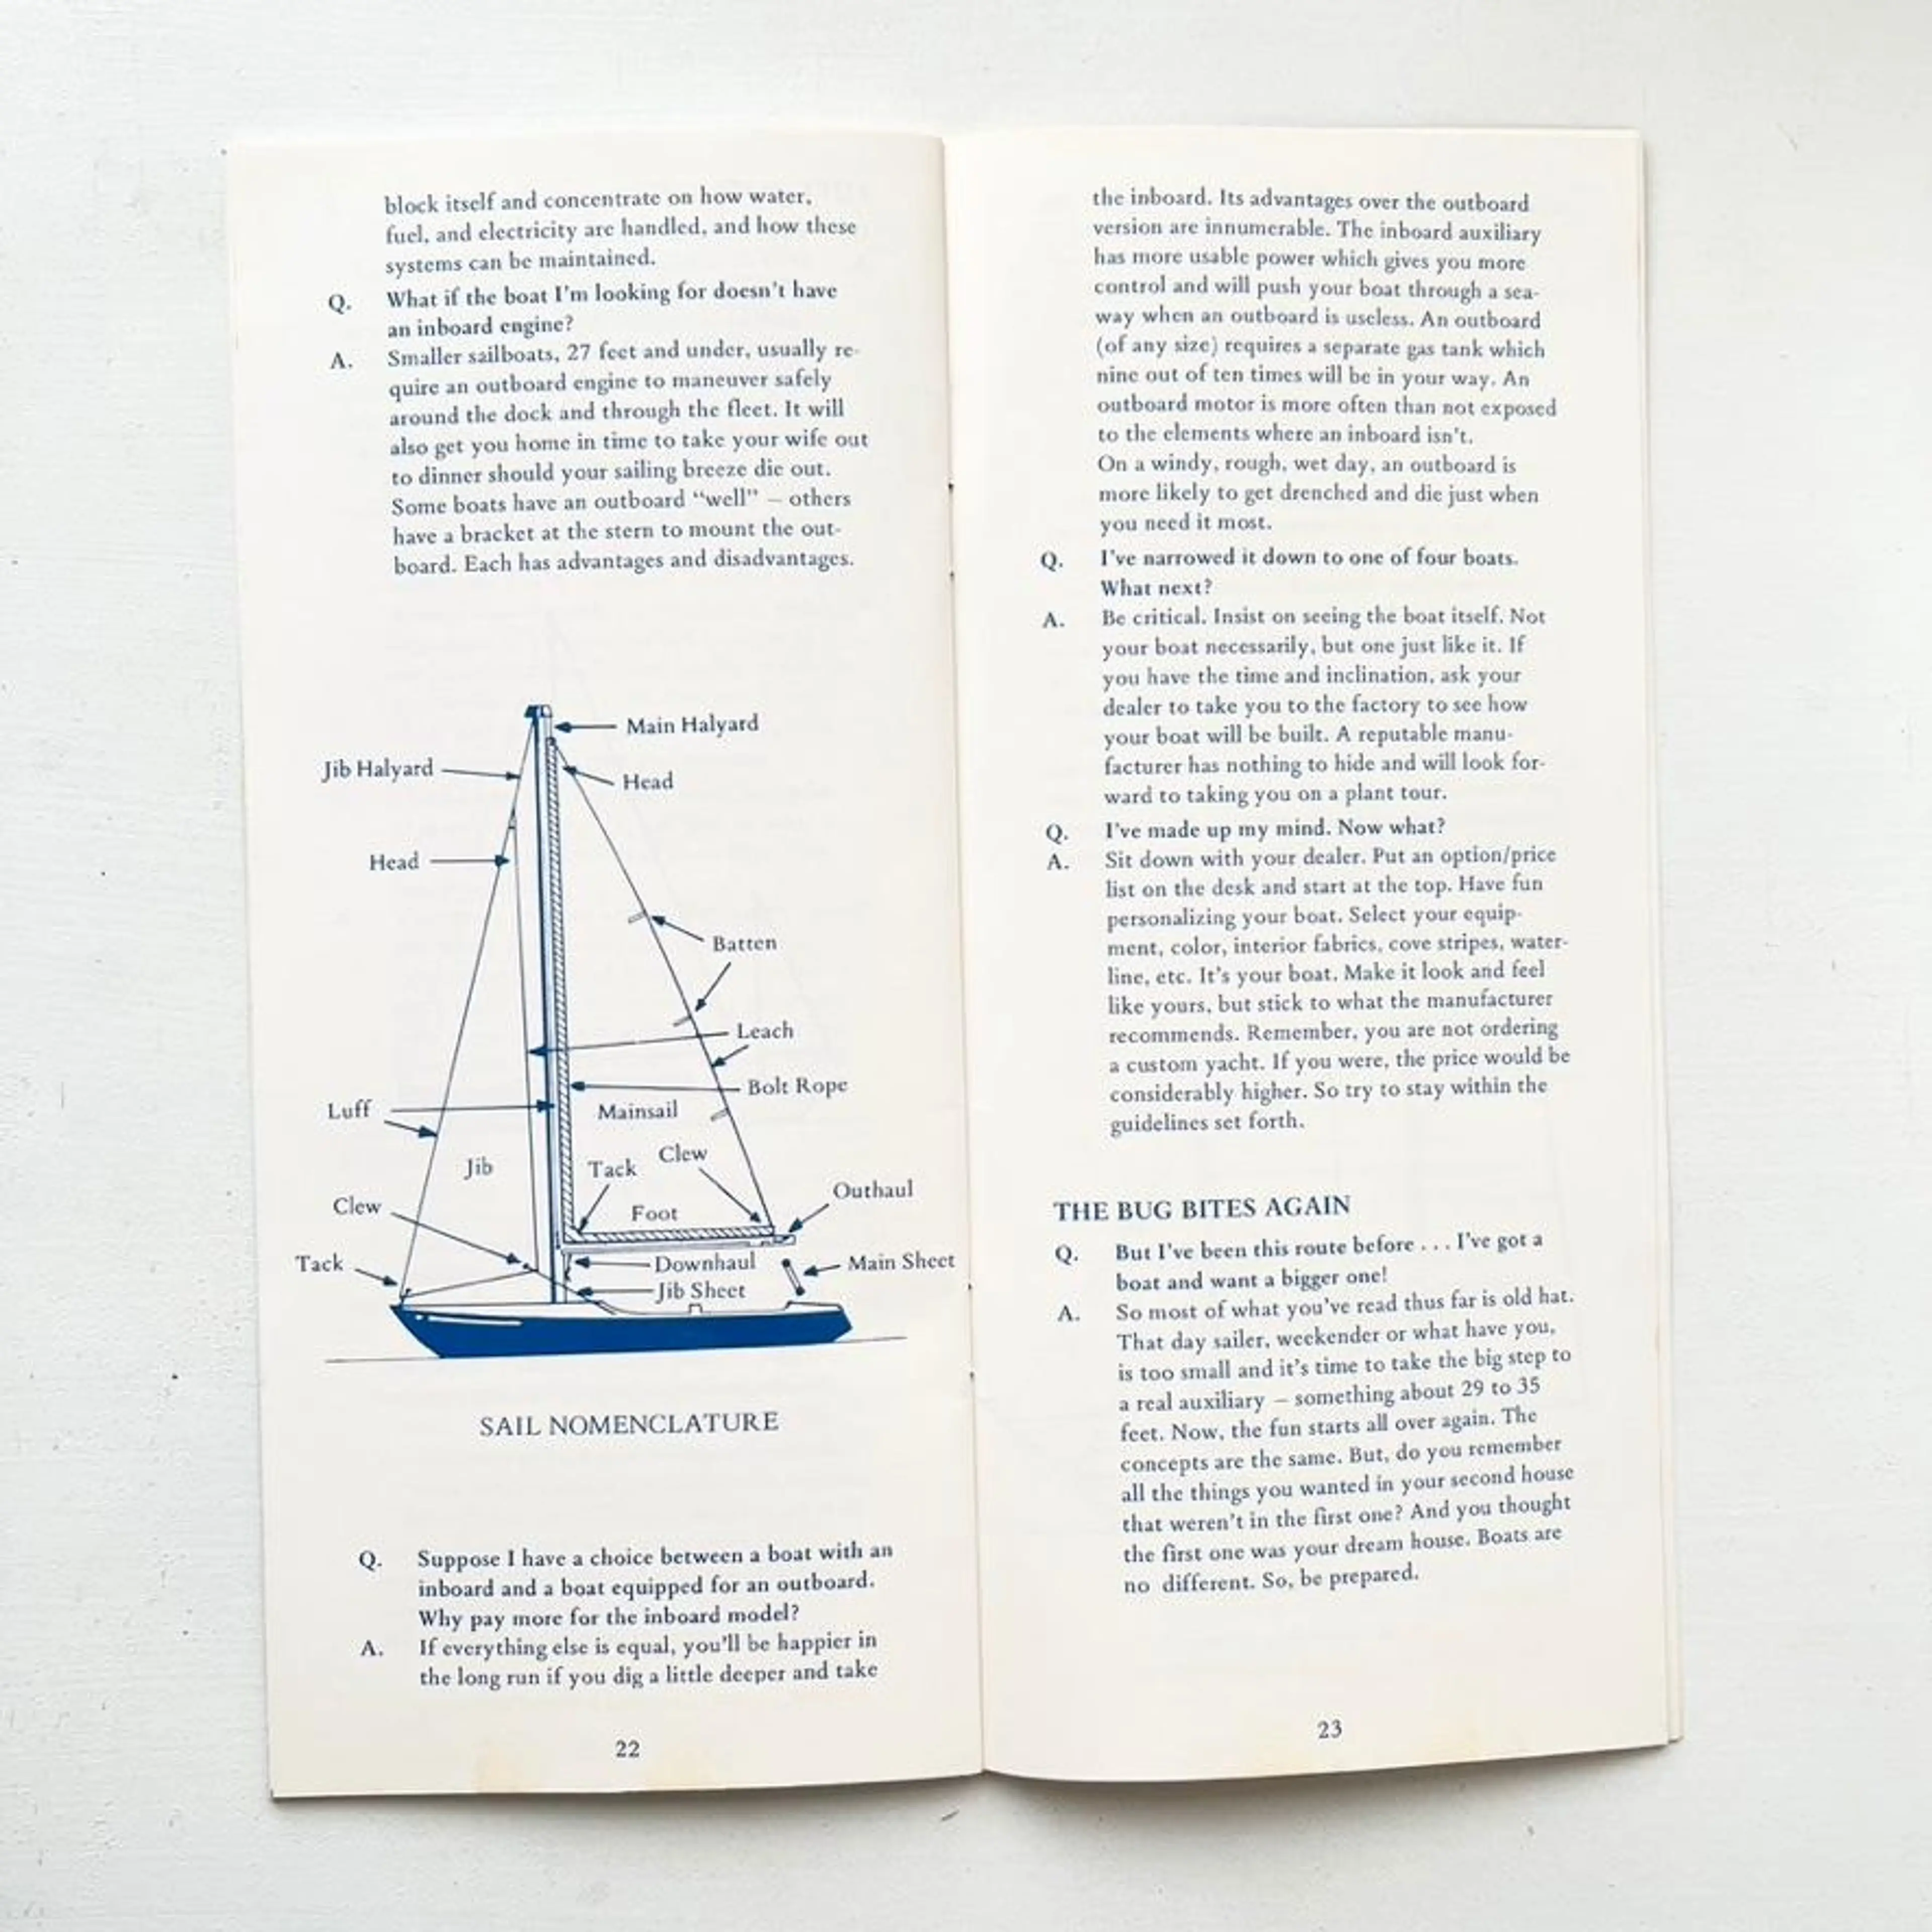 block itself and concentrate on how water,
fuel, and electricity are handled, and how these
systems can be maintained.
Q. What if the boat I'm looking for doesn't have
an inboard engine?
A. Smaller sailboats, 27 feet and under, usually re-
quire an outboard engine to maneuver safely
around the dock and through the fleet. It will
also get you home in time to take your wife out
to dinner should your sailing breeze die out.
Some boats have an outboard "well" – others
have a bracket at the stern to mount the out-
board. Each has advantages and disadvantages.
Main Halyard
Jib Halyard
Head
Head
Batten
Leach
Bolt Rope
Luff
Mainsail
Jib
Tack
Clew
Outhaul
Clew
Foot
Tack
Downhaul
Main Sheet
Jib Sheet
SAIL NOMENCLATURE
Q. Suppose I have a choice between a boat with an
inboard and a boat equipped for an outboard.
Why pay more for the inboard model?
A. If everything else is equal, you'll be happier in
the long run if you dig a little deeper and take
22
the inboard. Its advantages over the outboard
version are innumerable. The inboard auxiliary
has more usable power which gives you more
control and will push your boat through a sea-
way when an outboard is useless. An outboard
(of any size) requires a separate gas tank which
nine out of ten times will be in your way. An
outboard motor is more often than not exposed
to the elements where an inboard isn't.
On a windy, rough, wet day, an outboard is
more likely to get drenched and die just when
you need it most.
Q. I've narrowed it down to one of four boats.
What next?
A. Be critical. Insist on seeing the boat itself. Not
your boat necessarily, but one just like it. If
you have the time and inclination, ask your
dealer to take you to the factory to see how
your boat will be built. A reputable manu-
facturer has nothing to hide and will look for-
ward to taking you on a plant tour.
Q. I've made up my mind. Now what?
A. Sit down with your dealer. Put an option/price
list on the desk and start at the top. Have fun
personalizing your boat. Select your equip-
ment, color, interior fabrics, cove stripes, water-
line, etc. It's your boat. Make it look and feel
like yours, but stick to what the manufacturer
recommends. Remember, you are not ordering
a custom yacht. If you were, the price would be
considerably higher. So try to stay within the
guidelines set forth.
THE BUG BITES AGAIN
Q. But I've been this route before . . . I've got a
boat and want a bigger one!
A. So most of what you've read thus far is old hat.
That day sailer, weekender or what have you,
is too small and it's time to take the big step to
a real auxiliary – something about 29 to 35
feet. Now, the fun starts all over again. The
concepts are the same. But, do you remember
all the things you wanted in your second house
that weren't in the first one? And you thought
the first one was your dream house. Boats are
no different. So, be prepared.
23